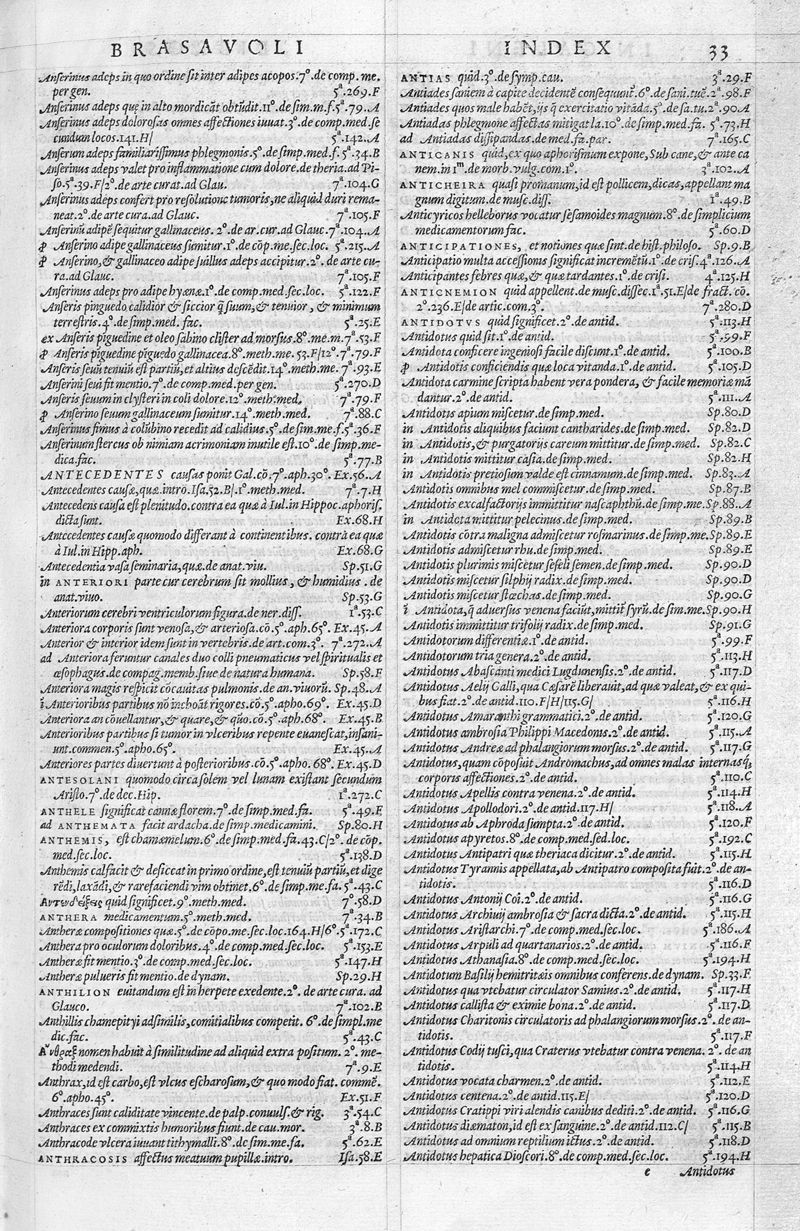 BRASAVOLI
Anserinus adeps in quo ordine sit inter adipes acopos.7º.de comp.me.
per gen. 5ª.269.F
Anserinus adeps quę in alto mordicãt obtũdit.11º.de sim.m.f.5ª.79.A
Anserinus adeps dolorosas omnes affectiones iuuat.3º.de comp.med.se
cundum locos.141.H/ 5ª.142.A
Anserum adeps familiarissimus phlegmonis.5º.de simp.med.f.5ª.34.B
Anserinus adeps valet pro inflammatione cum dolore.de theria.ad Pi-
so.5ª.39.F/2º.de arte curat.ad Glau. 7ª.104.G
Anserinus adeps confert pro resolutione tumoris, ne aliquid duri rema-
neat.2º.de arte cura.ad Glauc. 7ª.105.F
Anserinũ adipẽ sequitur gallinaceus. 2º.de ar.cur.ad Glauc.7ª.104.A
ꝓ Anserino adipe gallinaceus sumitur.1º.de cõp.me.sec.loc. 5ª.215.A
ꝓ Anserino,& gallinaceo adipe suillus adeps accipitur.2º.de arte cu-
ra.ad Glauc. 7ª.105.F
Anserinus adeps pro adipe hyænæ.1º.de comp.med.sec.loc. 5ª.122.F
Anseris pinguedo calidior & siccior q̃ suum,& tenuior, & minimum
terrestris.4º.de simp.med.fac. 5ª.25.E
ex Anseris piguedine et oleo sabino clister ad morsus.8º.me.m.7ª.53.F
ꝓ Anseris piguedine pĩguedo gallinacea.8º.meth.me. 53.F/12º.7ª.79.F
Anseris seuũ tenuiũ est partiũ,et altius descẽdit.14º.meth.me. 7ª.93.E
Anserini seui fit mentio.7º.de comp.med.per gen. 5ª.270.D
Anseris seuum in clysteri in coli dolore.12º.meth.med. 7ª.79.F
ꝓ Anserino seuum gallinaceum sumitur.14º.meth.med. 7ª.88.C
Anserinus fimus à colũbino recedit ad calidius.5º.de sim.me.f.5ª.36.F
Anserinum stercus ob nimiam acrimoniam inutile est.10º.de simp.me-
dica.fac. 5ª.77.B
ANTECEDENTES causas ponit Gal.cõ.7º.aph.30º. Ex.56.A
Antecedentes causæ,quæ.intro.Isa.52.B/.1º.meth.med. 7ª.7.H
Antecedens causa est plenitudo.contra ea quæ à Iul.in Hippoc.aphoris.
dicta sunt. Ex.68.H
Antecedentes causæ quomodo differant à continentibus. contrà ea quæ
à Iul.in Hipp.aph. Ex.68.G
Antecedentia vasa seminaria,quæ.de anat.viu. Sp.51.G
in ANTERIORI parte cur cerebrum sit mollius, & humidius .de
anat.viuo. Sp.53.G
Anteriorum cerebri ventriculorum figura.de ner.diss. 1ª.53.C
Anteriora corporis sunt venosa,& arteriosa.cõ.5º.aph.65º. Ex.45.A
Anterior & interior idem sunt in vertebris.de art.com.3º. 7ª.272.F
ad Anteriora feruntur canales duo colli pneumaticus vel spiritualis et
œsophagus.de compag.memb.siue de natura humana. Sp.58.F
Anteriora magis respicit cõcauitas pulmonis.de an.viuorũ. Sp.48.A
ĩ Anterioribus partibus nõ inchoãt rigores.cõ.5º.apho.69º. Ex.45.D
Anteriora an cõuellantur,& quare,& qũo.cõ.5º.aph.68º. Ex.45.B
Anterioribus partibus si tumor in vlceribus repente euanescat, insani-
unt.commen.5º.apho.65º. Ex.45.A
Anteriores partes diuertunt à posterioribus.cõ.5º.apho.68º. Ex.45.D
ANTESOLANI quomodo circa solem vel lunam existant secundum
Aristo.7º.de dec.Hip. 1ª.272.C
ANTHELE significat cannæ florem.7º.de simp.med.fa. 5ª.49.F
ad ANTHEMATA facit ardacha.de simp.medicamini. Sp.80.H
ANTHEMIS, est chamæmelum.6º.de simp.med.fa.43.C/2º.de cõp.
med.sec.loc. 5ª.138.D
Anthemis calfacit & desiccat in primo ordine, est tenuiũ partiũ, et dige
rẽdi,laxãdi,& rarefaciendi vim obtinet.6º.de simp.me.fa.5ª.43.C
quid significet.9º.meth.med. 7ª.58.D
ANTHERA medicamentum.5º.meth.med. 7ª.34.B
Antheræ compositiones quæ.5º.de cõpo.me.sec.loc.164.H/6º.5ª.172.C
Anthera pro oculorum doloribus.4º.de comp.med.sec.loc. 5ª.153.E
Antheræ fit mentio.3º.de comp.med.sec.loc. 5ª.147.H
Antheræ pulueris fit mentio.de dynam. Sp.29.H
ANTHILION euitandum est in herpete exedente.2º.de arte cura.ad
Glauco. 7ª.102.B
Anthillis chamepityi adsimilis,comitialibus competit. 6º.de simpl.me
dic.fac. 5ª.43.C
Ἄνθραξ nomen habuit à similitudine ad aliquid extra positum. 2º.me-
thodi medendi. 7ª.9.E
Anthrax,id est carbo,est vlcus escharosum,& quo modo fiat. commẽ.
6º.apho.45º. Ex.51.F
Anthraces sunt caliditate vincente.de palp.conuuls.& rig. 3ª.54.C
Anthraces ex commixtis humoribus fiunt.de cau.mor. 3ª.8.B
Anthracode vlcera iuuant tithymalli.8º.de sim.me.fa. 5ª.62.E
ANTHRACOSIS affectus meatuum pupillæ.intro. Isa.58.E
INDEX 33
ANTIAS quid.3º.de symp.cau. 3ª.29.F
Antiades saniem à capite decidentẽ consequunt̃.6º.de sani.tuẽ.2ª.98.F
Antiades quos male habẽt,ijs q̃ exercitatio vitãda.5º.de sa.tu.2ª.90.A
Antiadas phlegmone affectas mitigat la.10º.de simp.med.fa. 5ª.73.H
ad Antiadas dissipandas.de med.fa.par. 7ª.165.C
ANTICANIS quid,ex quo aphorismum expone, Sub cane,& ante ca
nem.in 1ᵐ.de morb.vulg.com.1º. 3ª.102.A
ANTICHEIRA quasi promanum,id est pollicem,dicas,appellant ma
gnum digitum.de musc.diss. 1ª.49.B
Anticyricos helleborus vocatur sesamoides magnum.8º.de simplicium
medicamentorum fac. 5ª.60.D
ANTICIPATIONES, et notiones quæ sint.de hist.philoso. Sp.9.B
Anticipatio multa accessionis significat incremẽtũ.1º.de cris.4ª.126.A
Anticipantes febres quæ,& quæ tardantes.1º.de crisi. 4ª.125.H
ANTICNEMION quid appellent.de musc.dissec.1ª.51.E/de fract. cõ.
2º.236.E/de artic.com.3º. 7ª.280.D
ANTIDOTVS quid significet.2º.de antid. 5ª.113.H
Antidotus quid sit.1º.de antid. 5ª.99.F
Antidota conficere ingeniosi facile discunt.1º.de antid. 5ª.100.B
ꝓ Antidotis conficiendis quæ loca vitanda.1º.de antid. 5ª.105.D
Antidota carmine scripta habent vera pondera, & facile memoriæ mã
dantur.2º.de antid. 5ª.111.A
Antidotus apium miscetur.de simp.med. Sp.80.D
in Antidotus aliquibus faciunt cantharides.de simp.med. Sp.82.D
in Antidotis,& purgatorijs careum mittitur.de simp.med. Sp.82.C
in Antidotis mittitur casia.de simp.med. Sp.82.H
in Antidotis pretiosum valde est cinnamum.de simp.med. Sp.83.A
Antidotis omnibus mel commiscetur.de simp.med. Sp.87.B
Antidotis excalfactorijs immittitur nascaphthũ.de simp.me.Sp.88.A
in Antidota mittitur pelecinus.de simp.med. Sp.89.B
Antidotis cõtra maligna admiscetur rosmarinus.de simp.me.Sp.89.E
Antidotis admiscetur rhu.de simp.med. Sp.89.E
Antidotis plurimis miscetur seseli semen.de simp.med. Sp.90.D
Antidotis miscetur silphij radix.de simp.med. Sp.90.D
Antidotis miscetur stœchas.de simp.med. Sp.90.G
ĩ Antidota,q̃ aduersus venena faciũt,mittit̃ syrũ.de sim.me.Sp.90.H
Antidotis immittitur trifolij radix.de simp.med. Sp.91.G
Antidotorum differentiæ.1º.de antid. 5ª.99.F
Antidotorum tria genera.2º.de antid. 5ª.113.H
Antidotus Abascanti medici Lugdunensis.2º.de antid. 5ª.117.D
Antidotus Aelij Galli,qua Cæsarẽ liberauit,ad quæ valeat,& ex qui-
bus fiat.2º.de antid.110.F/H/115.G/ 5ª.116.H
Antidotus Amaranthi grammatici.2º.de antid. 5ª.120.G
Antidotus ambrosia Philippi Macedonis.2º.de antid. 5ª.115.A
Antidotus Andreæ ad phalangiorum morsus.2º.de antid. 5ª.117.G
Antidotus,quam cõposuit Andromachus,ad omnes malas internasq;
corporis affectiones.2º.de antid. 5ª.110.C
Antidotus Apellis contra venena.2º.de antid. 5ª.114.H
Antidotus Apollodori.2º.de antid.117.H/ 5ª.118.A
Antidotus ab Aphroda sumpta.2º.de antid. 5ª.120.F
Antidotus apyretos.8º.de comp.med.sed.loc. 5ª.192.C
Antidotus Antipatri quæ theriaca dicitur.2º.de antid. 5ª.115.H
Antidotus Tyrannis appellata,ab Antipatro composita fuit.2º.de an-
tidotis. 5ª.116.D
Antidotus Antonij Coi.2º.de antid. 5ª.116.G
Antidotus Archiuij ambrosia & sacra dicta.2º.de antid. 5ª.115.H
Antidotus Aristarchi.7º.de comp.med.sec.loc. 5ª.186.A
Antidotus Arpuli ad quartanarios.2º.de antid. 5ª.116.F
Antidotus Athanasia.8º.de comp.med.sec.loc. 5ª.194.H
Antidotum Basilij hemitritæis omnibus conferens.de dynam. Sp.33.F
Antidotus qua vtebatur circulator Samius.2º.de antid. 5ª.117.H
Antidotus callista & eximie bona.2º.de antid. 5ª.117.D
Antidotus Charitonis circulatoris ad phalangiorum morsus.2º.de an-
tidotis. 5ª.117.F
Antidotus Codij tusci,qua Craterus vtebatur contra venena. 2º.de an
tidotis. 5ª.114.H
Antidotus vocata charmen.2º.de antid. 5ª.112.E
Antidotus centena.2º.de antid.115.E/ 5ª.120.D
Antidotus Cratippi viri alendis canibus dediti.2º.de antid. 5ª.116.G
Antidotus diæmaton,id est ex sanguine.2º.de antid.112.C/ 5ª.115.B
Antidotus ad omnium reptilium ictus.2º.de antid. 5ª.118.D
Antidotus hepatica Dioscori.8º.de comp.med.sec.loc. 5ª.194.H
e Antidotus